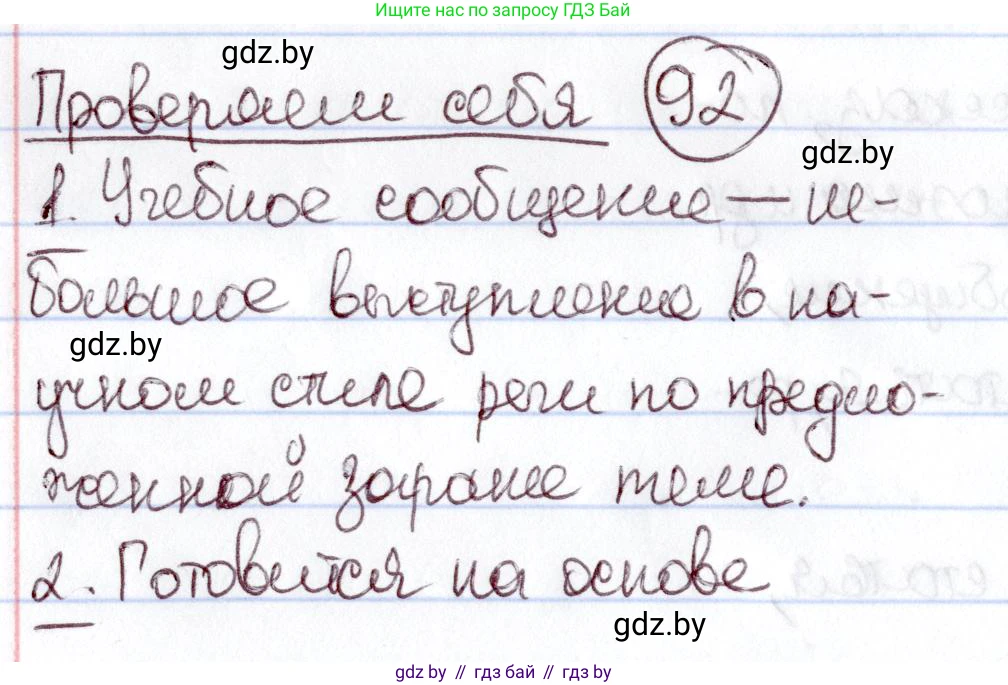 Ищите нас по запросу ГДЗ Бай
gdz.by
Проверяем себя 92
gdz.by
1. Учебное сообщение — не-
большое выступление в на-
gdz.by
учном стиле речи по предло-
женной заранее теме.
2. Готовится на основе
gdz.by
gdz.by // гдз бай // гдз by